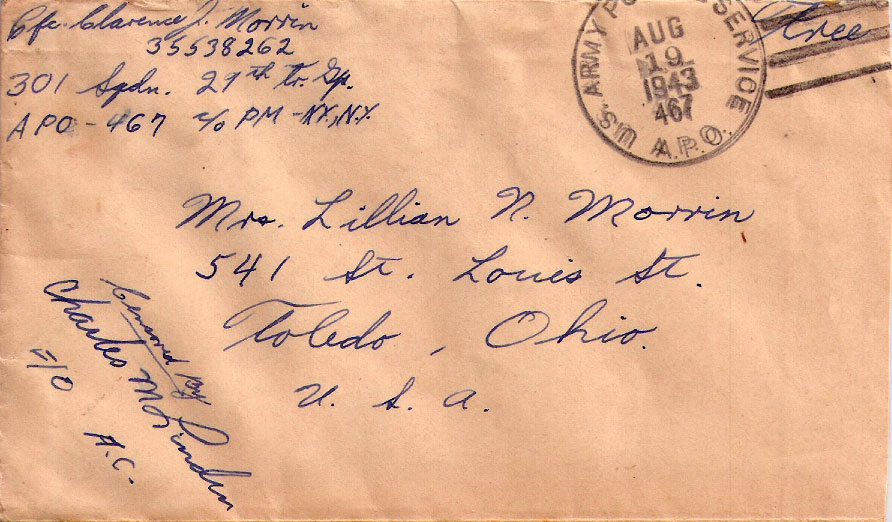 Pfc. Clarence J. Morrin
35538262
301 Sqdn. 29th Tr. Gp.
APO - 467 c/o PM - N.Y., N.Y.
U.S. ARMY POSTAL SERVICE
AUG
19
1943
467
A.P.O.
Free
Mrs. Lillian N. Morrin
541 St. Louis St.
Toledo, Ohio.
U. S. A.
Censored By
Charles M Linden
F/O
A.C.